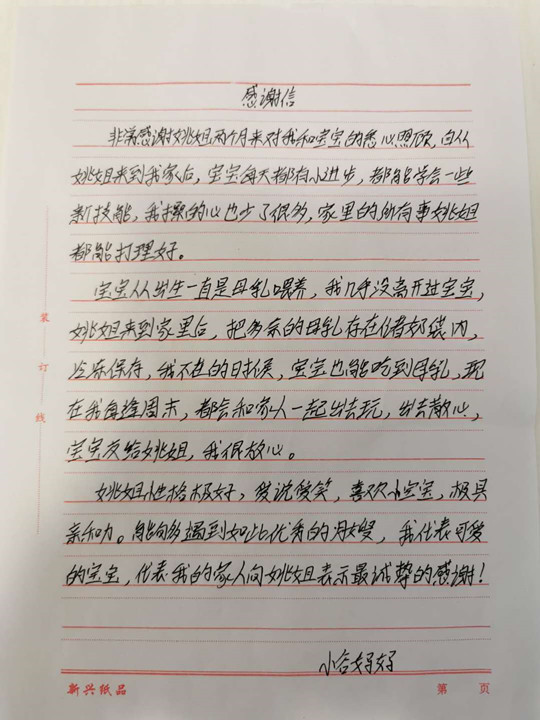 感谢信
非常感谢姚姐两个月来对我和宝宝的悉心照顾,自从
姚姐来到我家后,宝宝每天都有小进步,都能学会一些
新技能,我操的心也少了很多,家里的所有事姚姐
都能打理好。
宝宝从出生一直是母乳喂养,我几乎没离开过宝宝,
姚姐来到家里后,把多余的母乳存在储奶袋内,
冷冻保存,我不在的时候,宝宝也能吃到母乳,现
在我每逢周末,都会和家人一起出去玩,出去散心,
宝宝交给姚姐,我很放心。
姚姐性格极好,爱说爱笑,喜欢小宝宝,极具
亲和力。能够遇到如此优秀的月嫂,我代表可爱
的宝宝,代表我的家人向姚姐表示最诚挚的感谢!
小合好好
装
订
线
新兴纸品
第 页